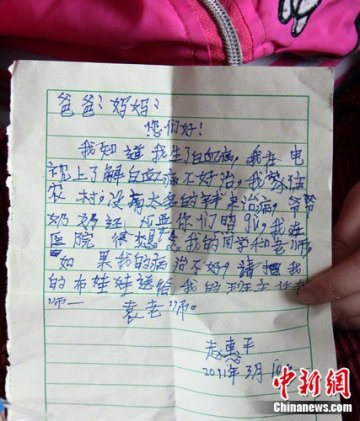 爸爸:妈妈:
您们好!
我知道我生了白血病,我在电
视上了解白血病不好治,我家住
农村,没有太多的钱来治病,爷爷
奶奶还 你们吧 我在
医院 很想念我的同学和老师
如果我的病治不好,请把我
的布娃娃送给我的班主任老
师——
袁老师。
赵惠平
2011年3月1
中新网
Chinanews.com